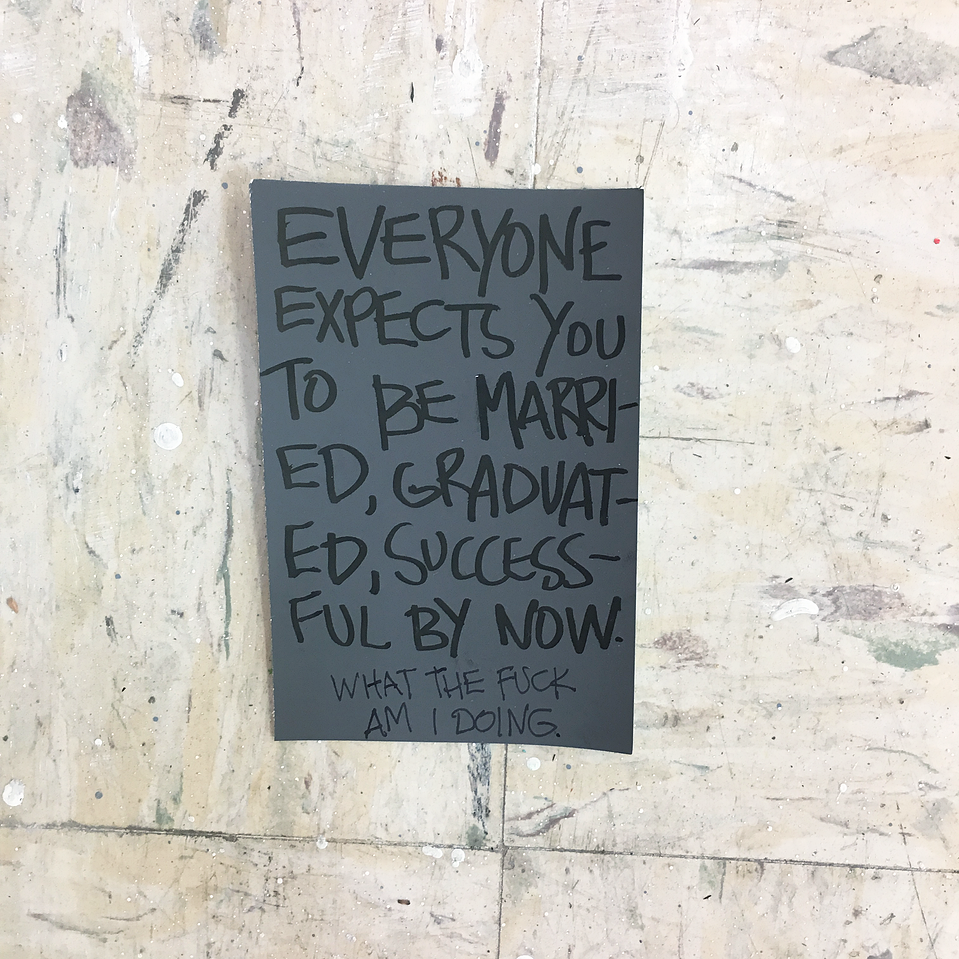 EVERYONE
EXPECTS YOU
TO BE MARRI-
ED, GRADUAT-
ED, SUCCESS-
FUL BY NOW.
WHAT THE FUCK
AM I DOING.